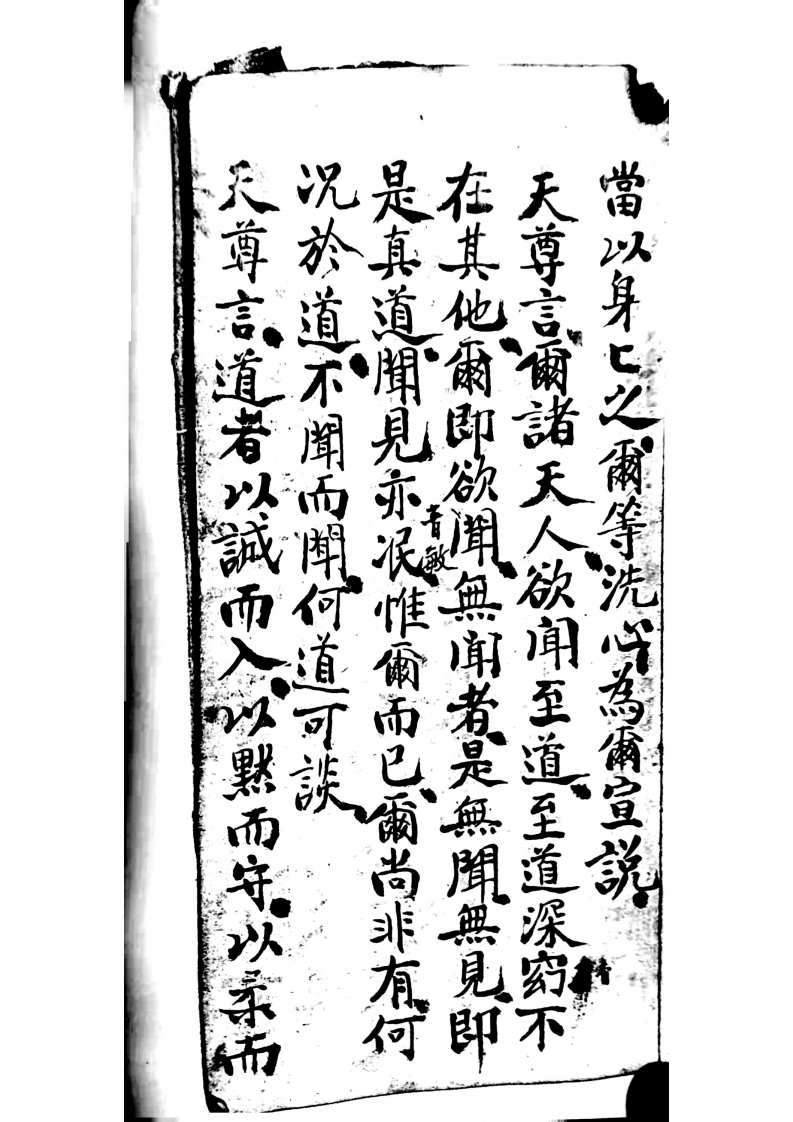 當以身匕之爾等洗心為爾宣說
天尊言爾諸天人欲聞至道至道深窈不
在其他爾即欲聞無聞者是無聞無見即
是真道聞見亦泯惟爾而已爾尚非有何
音敏
況於道不聞而聞何道可談
天尊言道者以誠而入以黙而守以柔而